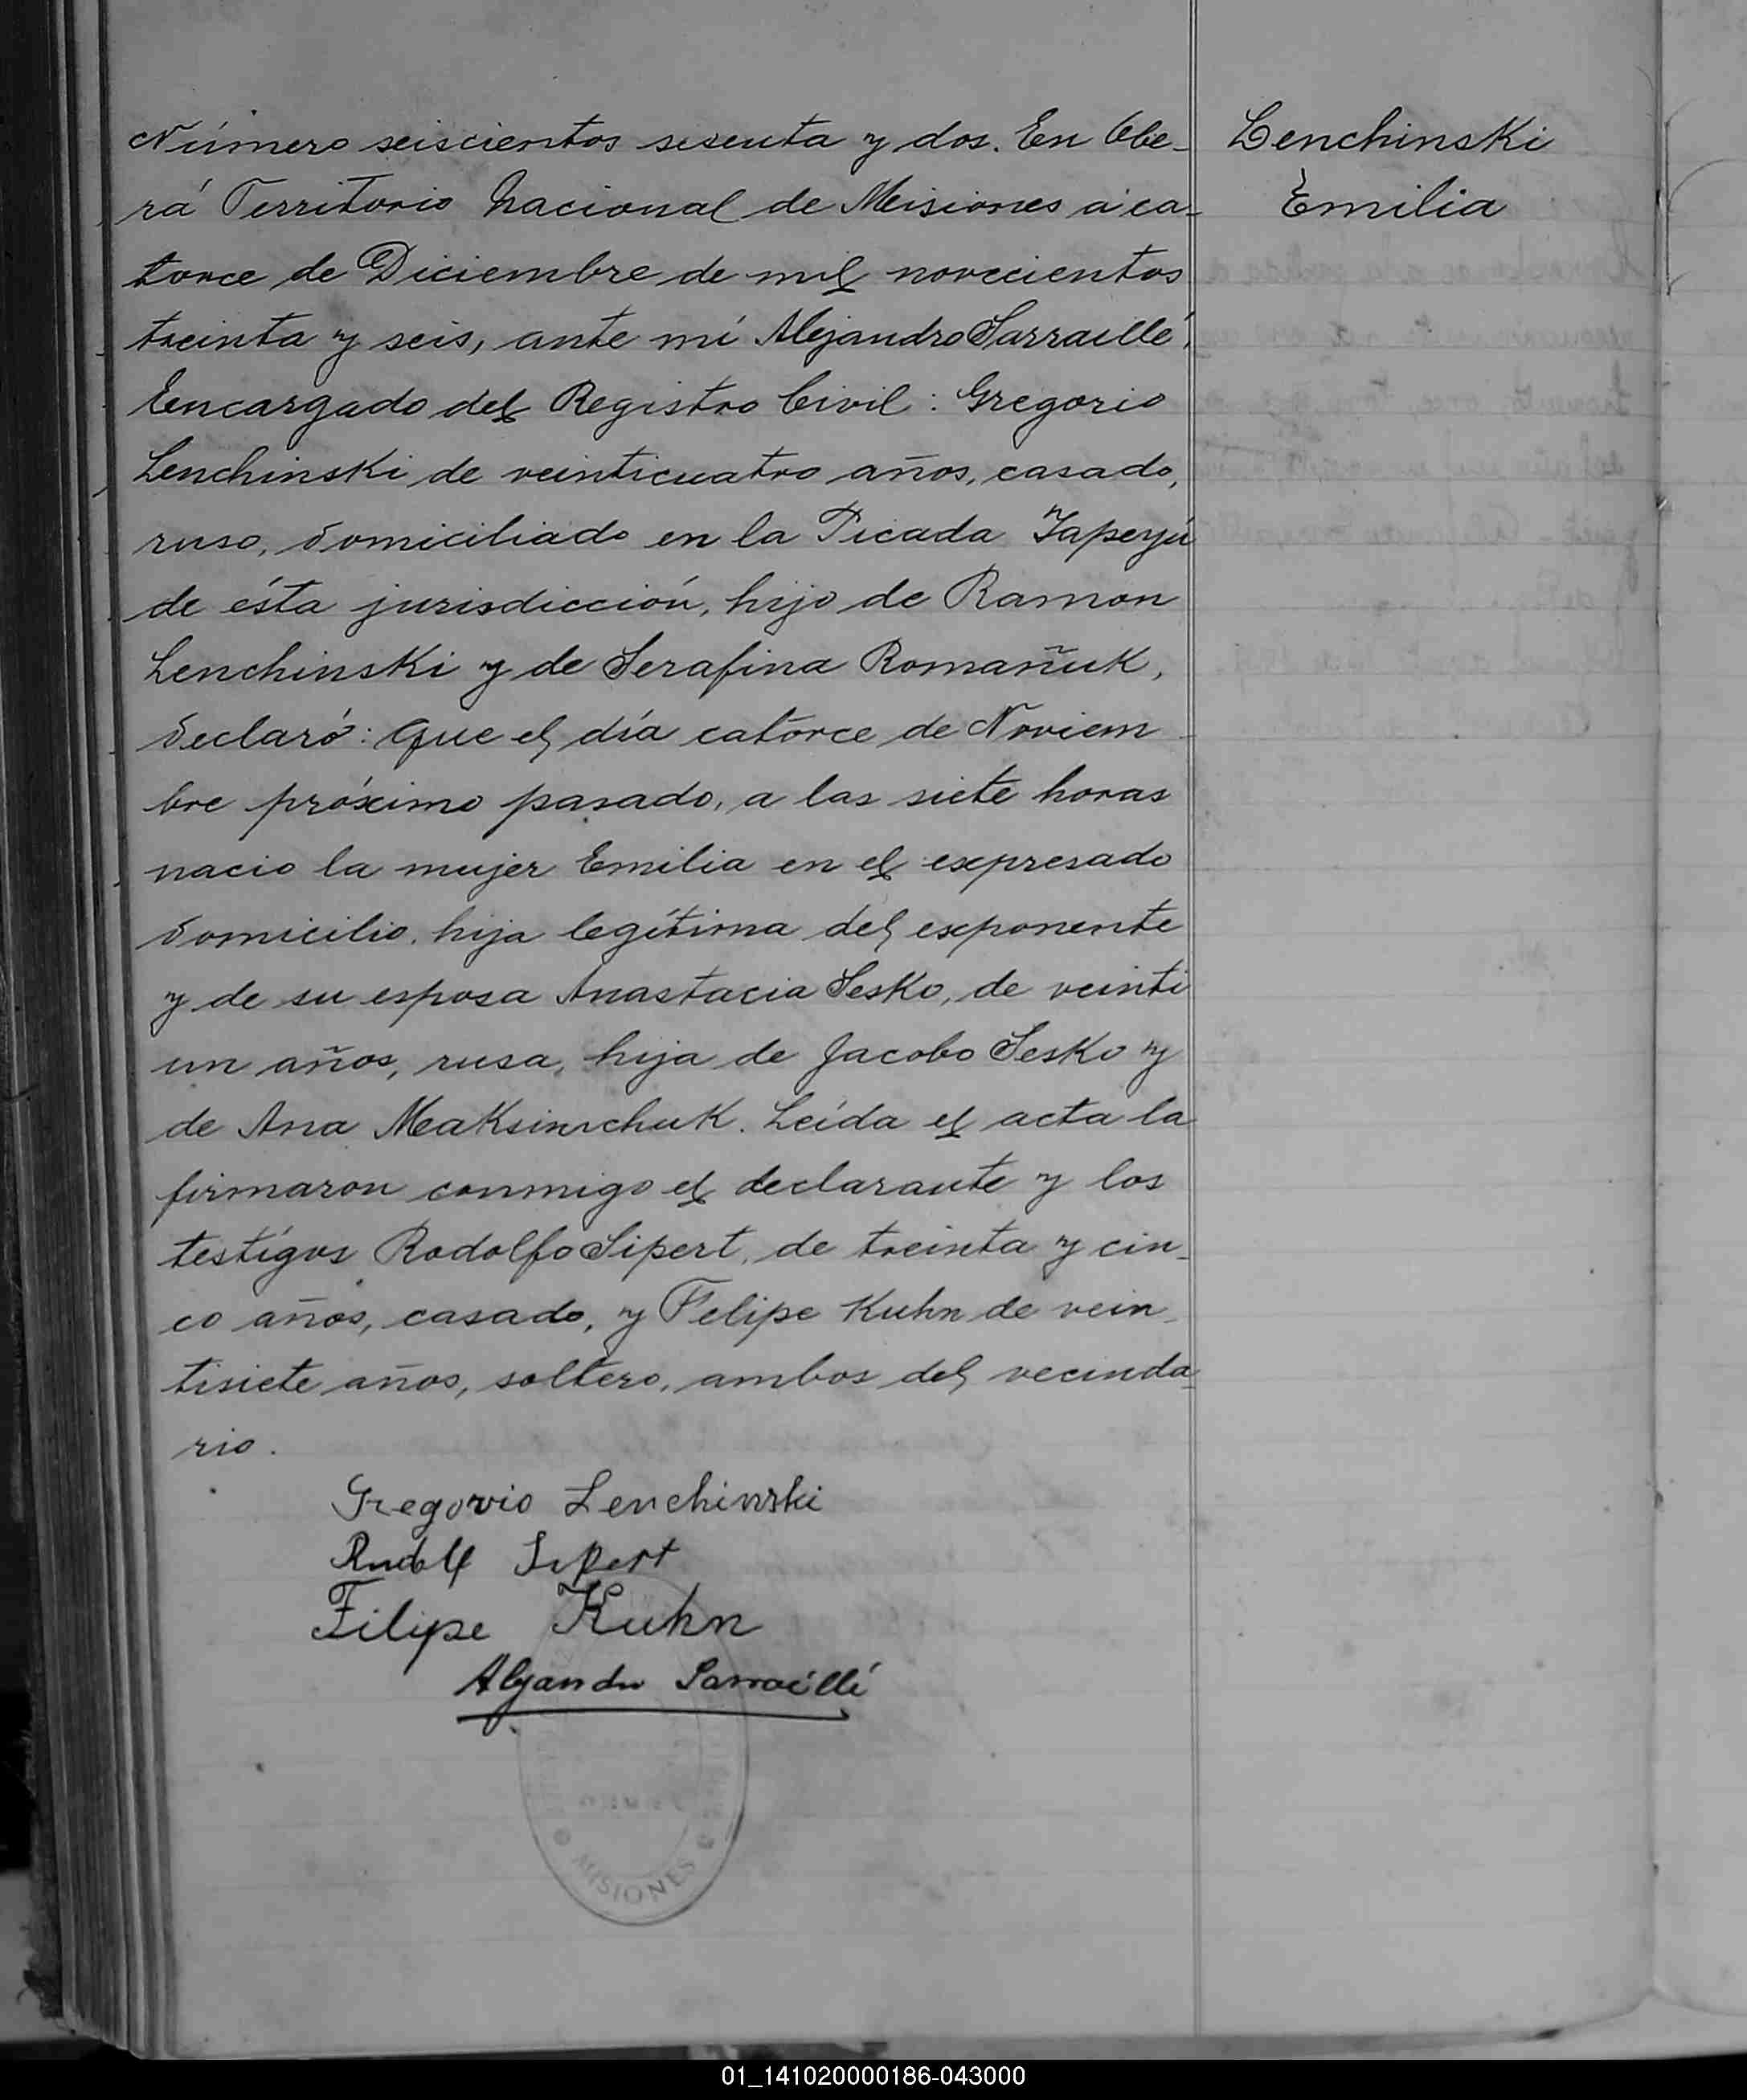 Número seiscientos sesenta y dos. En Obe-
rá Territorio Nacional de Misiones a ca-
torce de Diciembre de mil novecientos
treinta y seis, ante mí Alejandro Sarraillé,
Encargado del Registro Civil: Gregorio
Lenchinski de veinticuatro años, casado,
ruso, domiciliado en la Picada Yapeyú
de ésta jurisdicción, hijo de Ramon
Lenchinski y de Serafina Romañuk,
declaró: Que el día catorce de Noviem
bre próximo pasado, a las siete horas
nacio la mujer Emilia en el expresado
domicilio, hija legítima del exponente
y de su esposa Anastacia Sesko, de veinti
un años, rusa, hija de Jacobo Sesko y
de Ana Maksimchuk. Leída el acta la
firmaron conmigo el declarante y los
testigos Rodolfo Sipert, de treinta y cin-
co años, casado, y Felipe Kuhn de vein
tisiete años, soltero, ambos del vecinda-
rio.
Gregorio Lenchinski
Rudolf Sipert
Filipe Kuhn
Alejandro Sarraillé
MISIONES
Lenchinski
Emilia
01_141020000186-043000